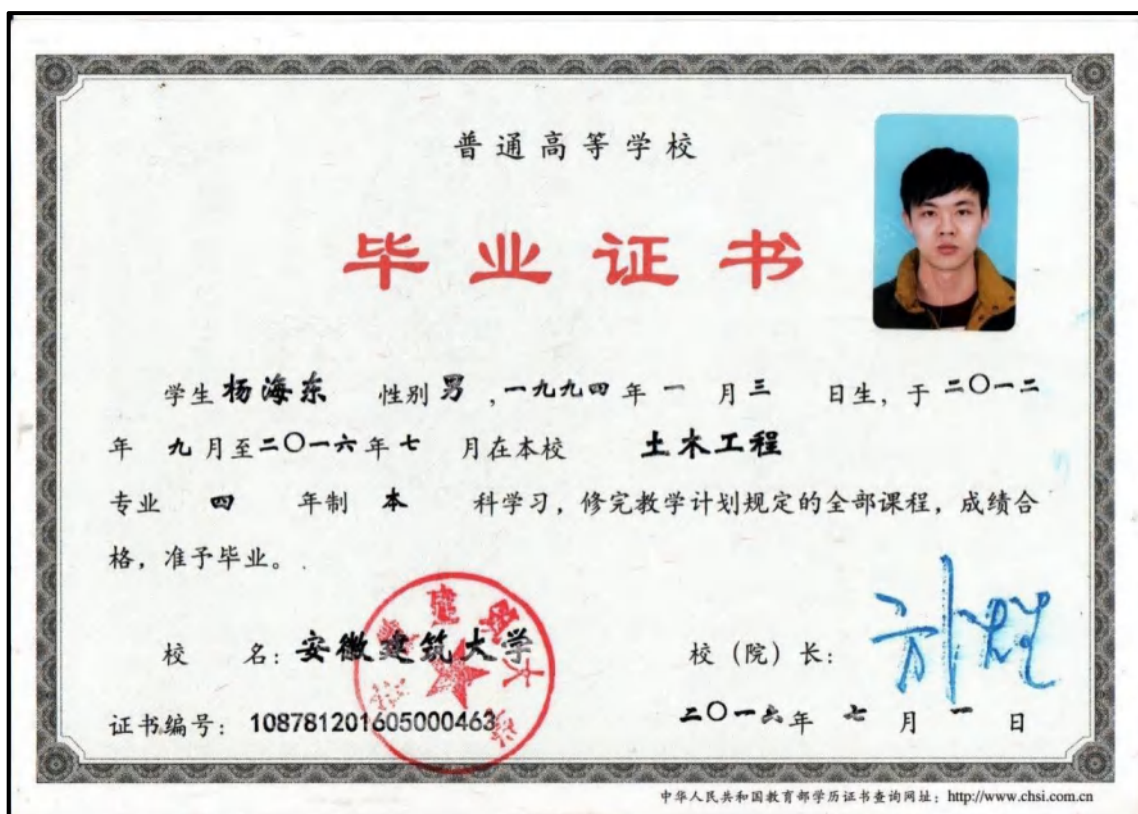 普通高等学校
毕业证书
学生 杨海东 性别 男 ,一九九四 年 一 月 三 日生，于 二〇一二
年 九 月至 二〇一六 年 七 月在本校 土木工程
专业 四 年制 本 科学习，修完教学计划规定的全部课程，成绩合
格，准予毕业。
校 名：安徽建筑大学
校（院）长：
证书编号：108781201605000463
二〇一六 年 七 月 一 日
中华人民共和国教育部学历证书查询网址：http://www.chsi.com.cn